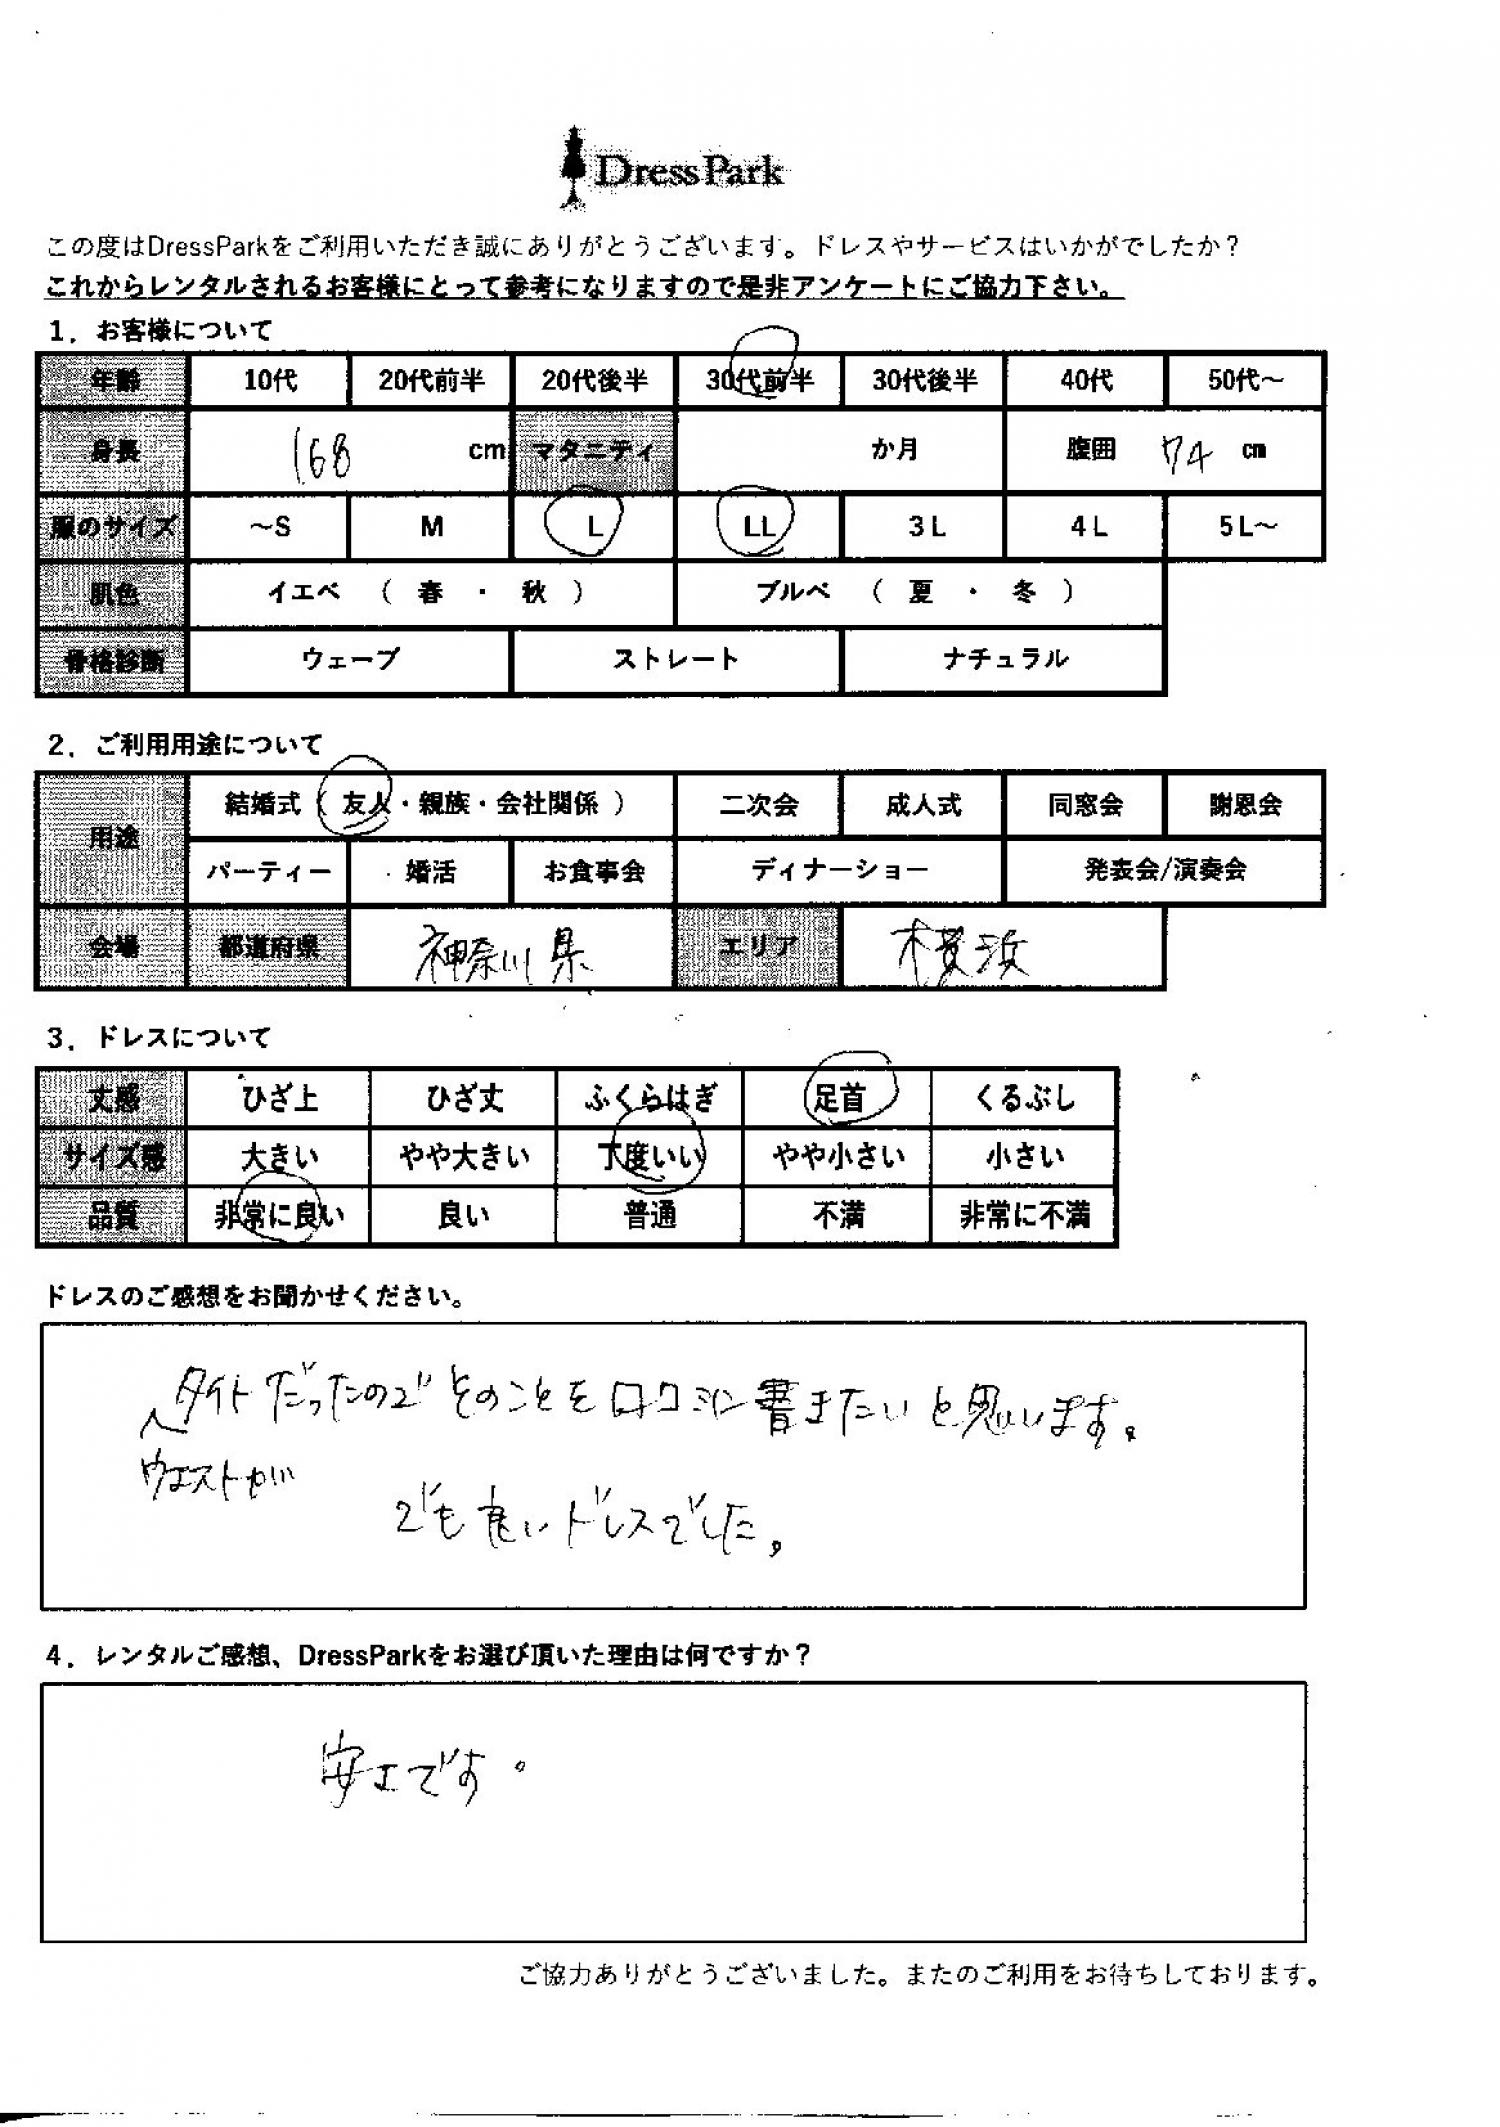 DressPark
この度はDressParkをご利用いただき誠にありがとうございます。ドレスやサービスはいかがでしたか？
これからレンタルされるお客様にとって参考になりますので是非アンケートにご協力下さい。
1．お客様について
年齢 10代 20代前半 20代後半 30代前半 30代後半 40代 50代～
身長 168 cm マタニティ か月 腹囲 74 cm
服のサイズ ～S M L LL 3L 4L 5L～
肌色 イエベ （ 春 ・ 秋 ） ブルベ （ 夏 ・ 冬 ）
骨格診断 ウェーブ ストレート ナチュラル
2．ご利用用途について
用途 結婚式（ 友人・親族・会社関係 ） 二次会 成人式 同窓会 謝恩会
パーティー 婚活 お食事会 ディナーショー 発表会/演奏会
会場 都道府県 神奈川県 エリア 横浜
3．ドレスについて
丈感 ひざ上 ひざ丈 ふくらはぎ 足首 くるぶし
サイズ感 大きい やや大きい 丁度いい やや小さい 小さい
品質 非常に良い 良い 普通 不満 非常に不満
ドレスのご感想をお聞かせください。
タイトだったのでそのことを口コミに書きたいと思います。
ウエストが
でも良いドレスでした。
4．レンタルご感想、DressParkをお選び頂いた理由は何ですか？
安さです。
ご協力ありがとうございました。またのご利用をお待ちしております。